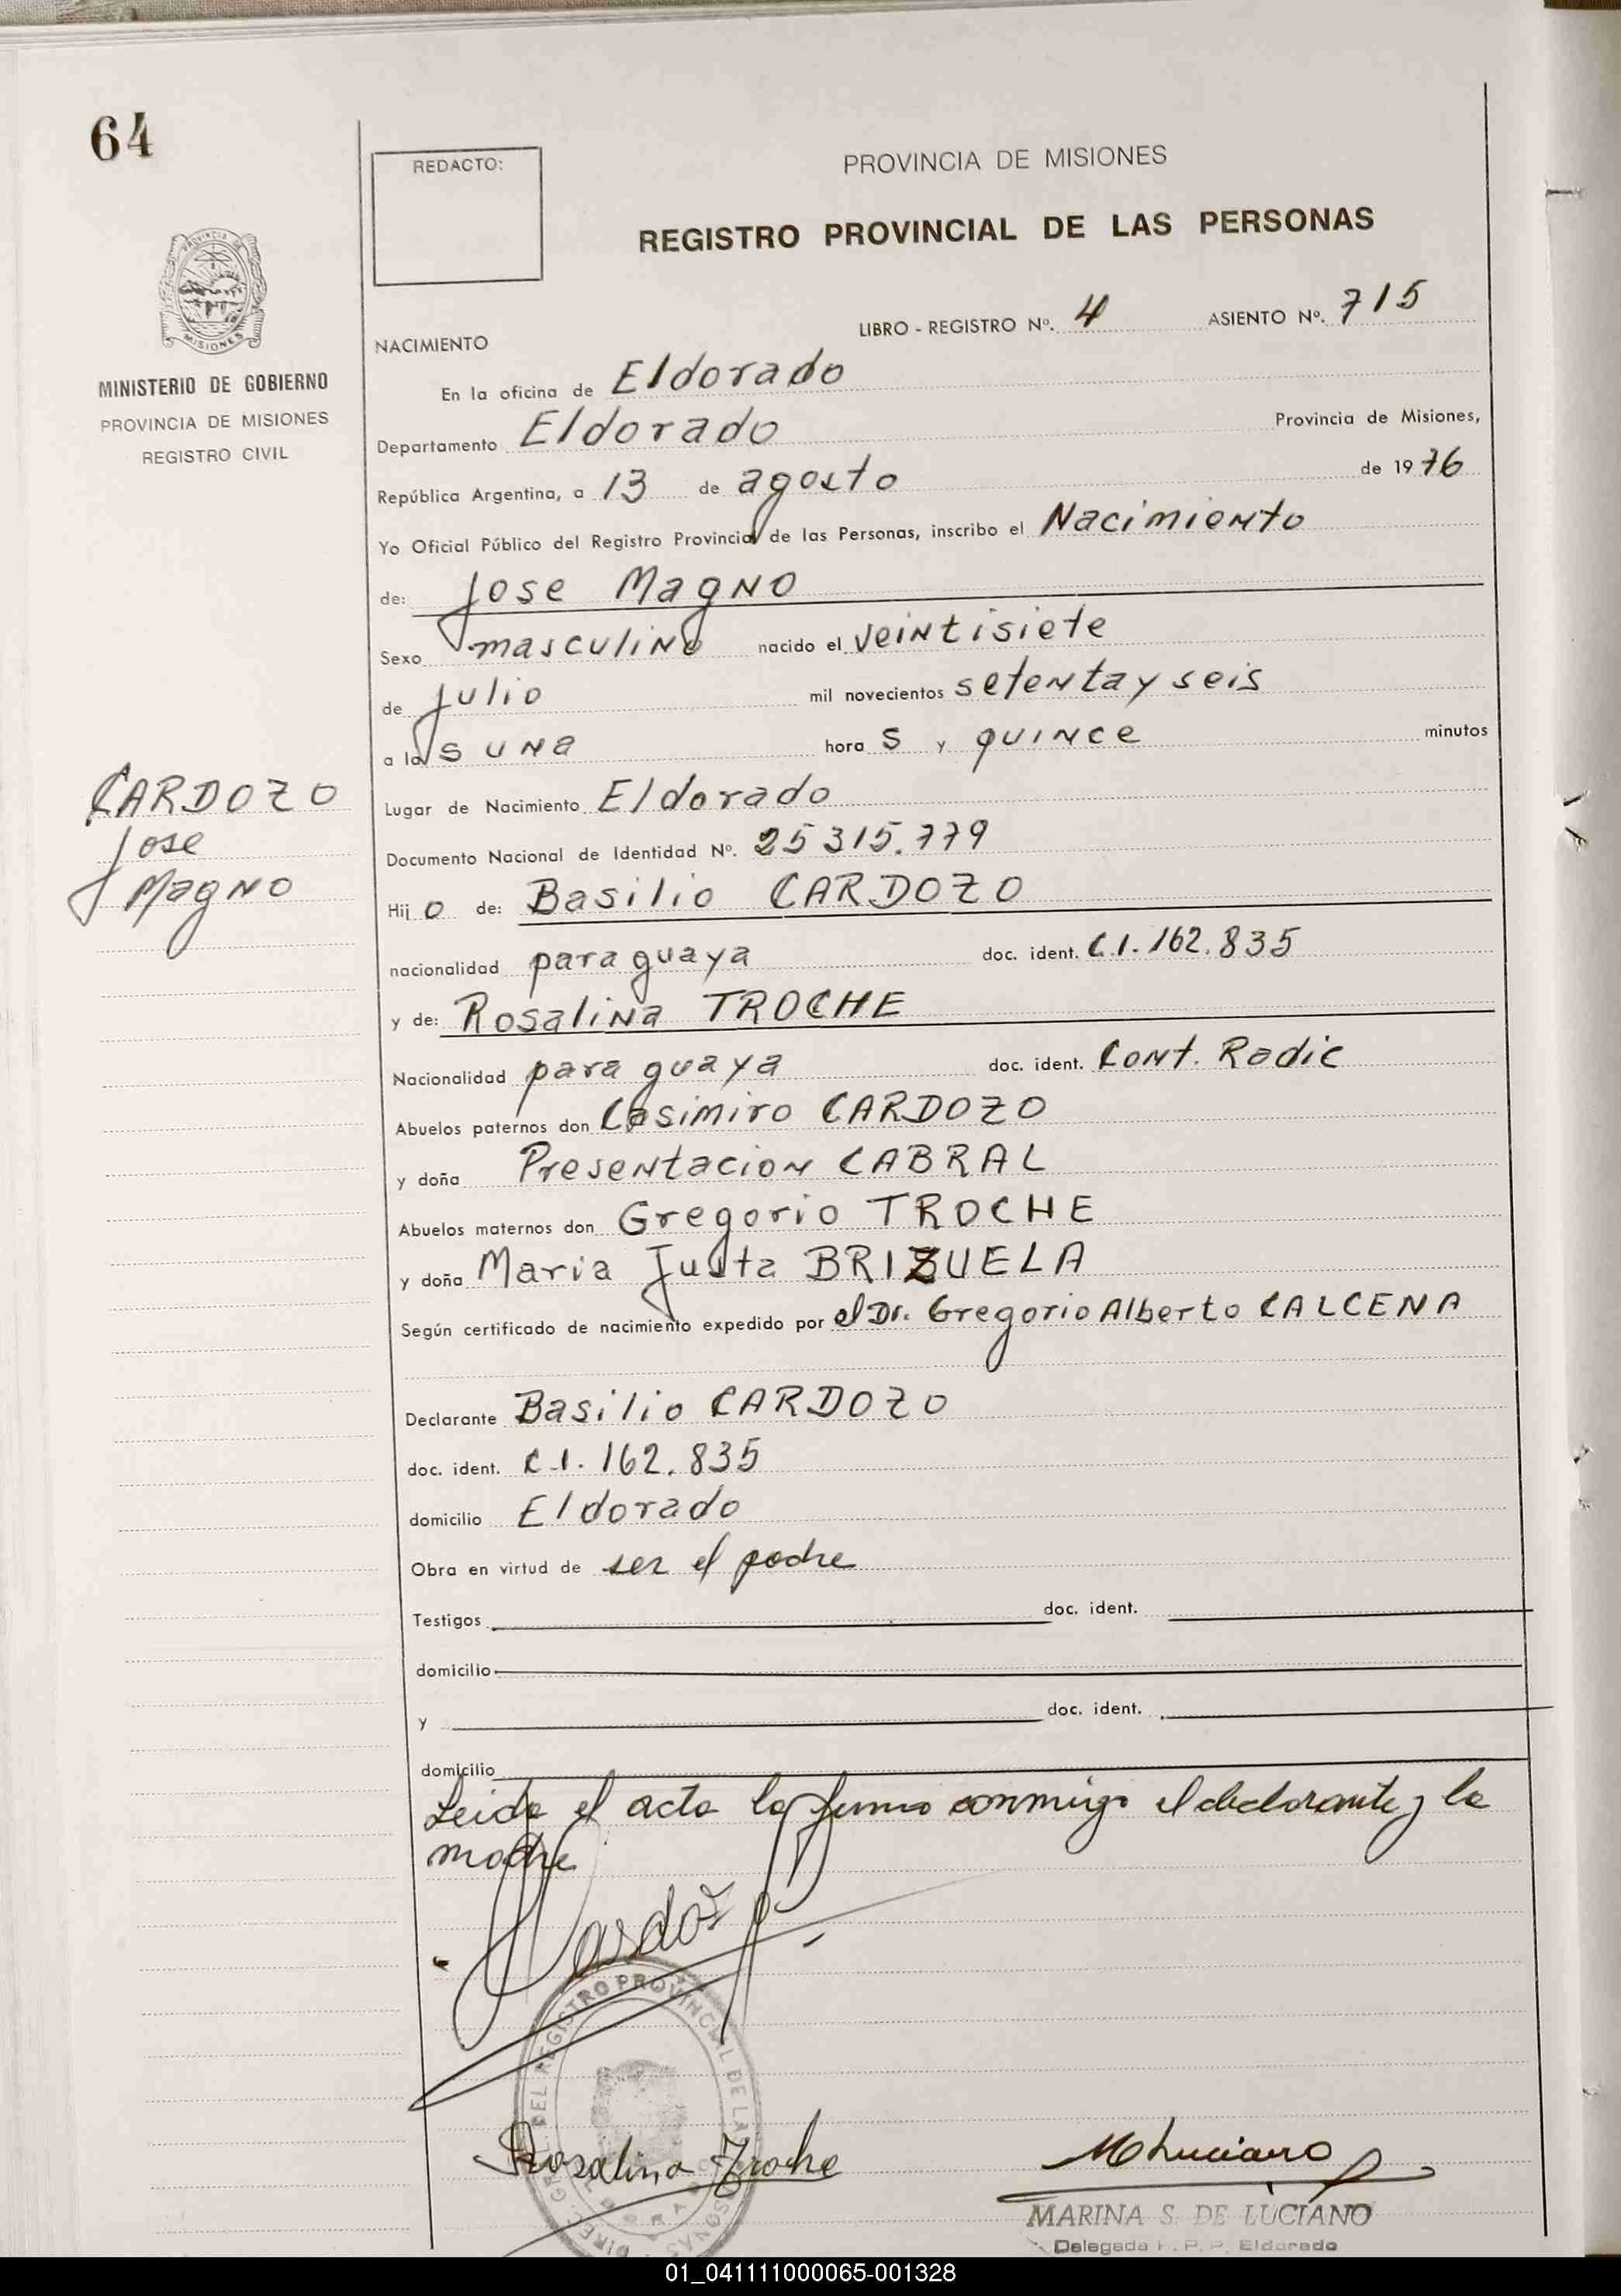 64
REDACTO:
PROVINCIA DE MISIONES
REGISTRO PROVINCIAL DE LAS PERSONAS
PROVINCIA DE
MISIONES
MINISTERIO DE GOBIERNO
PROVINCIA DE MISIONES
REGISTRO CIVIL
LIBRO - REGISTRO Nº. 4 ASIENTO Nº. 715
NACIMIENTO
En la oficina de Eldorado
Departamento Eldorado Provincia de Misiones,
República Argentina, a 13 de agosto de 1976
Yo Oficial Público del Registro Provincial de las Personas, inscribo el Nacimiento
de: Jose Magno
Sexo masculino nacido el veintisiete
de julio mil novecientos setenta y seis
a las una hora s y quince minutos
CARDOZO
Jose
Magno
Lugar de Nacimiento Eldorado
Documento Nacional de Identidad Nº. 25 315.779
Hij o de: Basilio CARDOZO
nacionalidad paraguaya doc. ident. C.I. 162.835
y de: Rosalina TROCHE
Nacionalidad paraguaya doc. ident. Cont. Radic
Abuelos paternos don Casimiro CARDOZO
y doña Presentacion CABRAL
Abuelos maternos don Gregorio TROCHE
y doña Maria Justa BRIZUELA
Según certificado de nacimiento expedido por el Dr. Gregorio Alberto CALCENA
Declarante Basilio CARDOZO
doc. ident. C.I. 162.835
domicilio Eldorado
Obra en virtud de ser el padre
Testigos doc. ident.
domicilio
y doc. ident.
domicilio
Leida el acta la firma conmigo el declarante y la
madre
DIREC. GRAL. DEL REGISTRO PROVINCIAL DE LAS PERSONAS
Rosalina Troche
MLuciano
MARINA S. DE LUCIANO
Delegada R. P. P. Eldorado
01_041111000065-001328